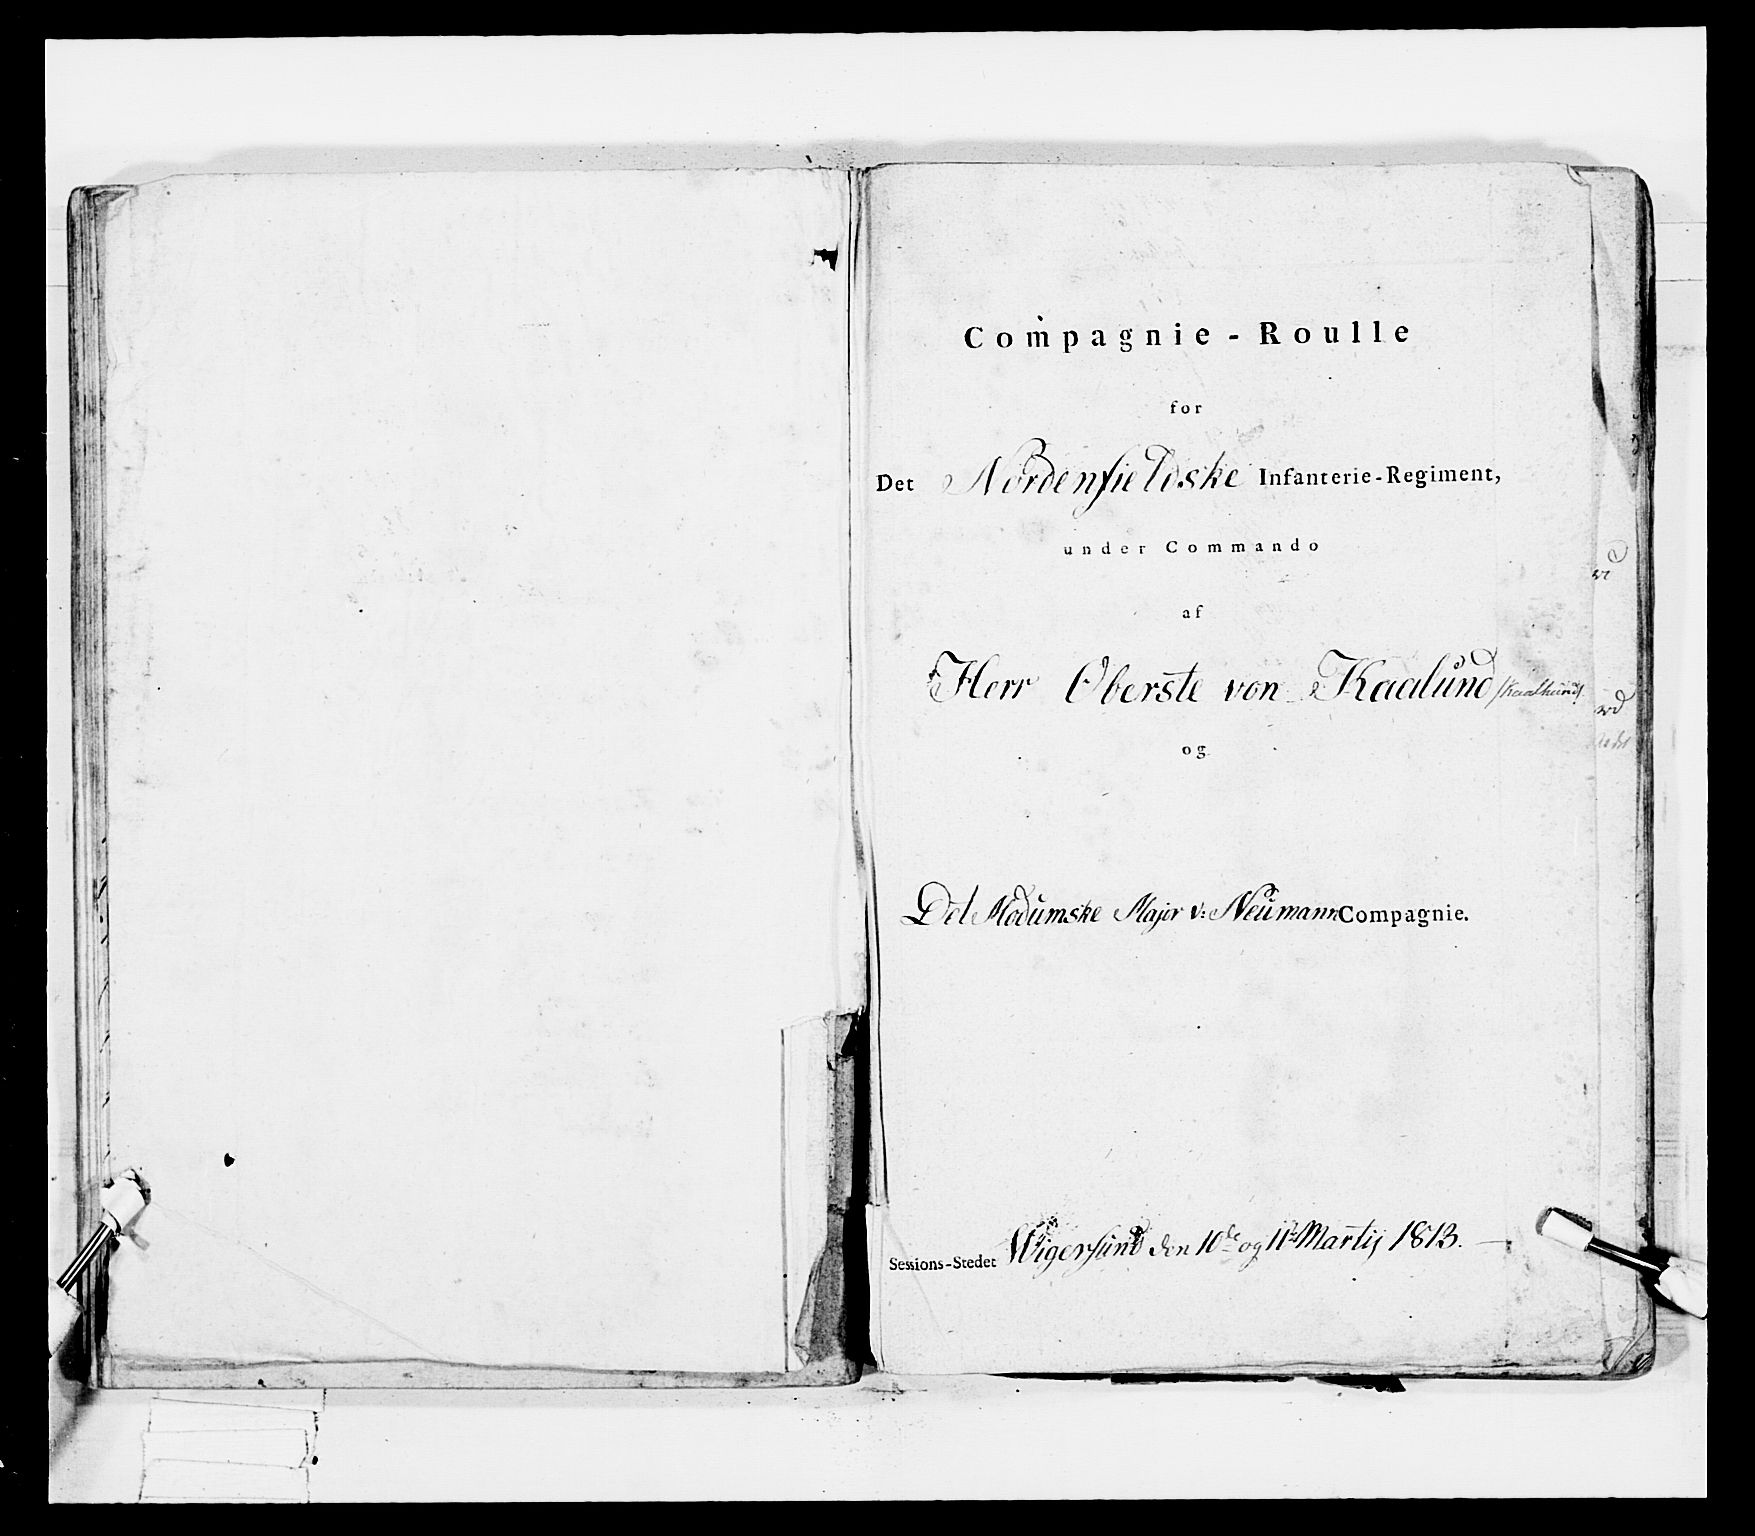 Compagnie-Roulle
for
Det Nordenfieldske Infanterie-Regiment,
under Commando
af
Herr Oberste von Kaalund /Kaalhund/
og
Det Modumske Major v: Neumann Compagnie.
Sessions-Stedet Wigersund den 10de og 11te Martij 1813.